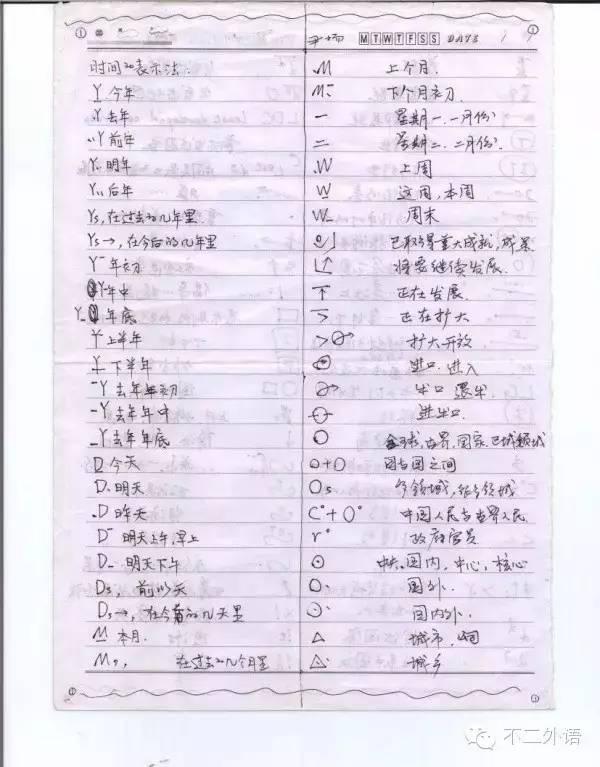 开场 MTWTFSS DATE / /
时间の表示法:
Y 今年
.Y 去年
..Y 前年
Y. 明年
Y.. 后年
Ys, 在过去の几年里
Ys→, 在今后の几年里
Y¯ 年初
Y 年中
Y_ 年底
上半年
下半年
¯Y 去年年初
-Y 去年年中
_Y 去年年底
D 今天
D. 明天
.D 昨天
D¯ 明天上午,早上
D_ 明天下午
Ds, 前以天
Ds→, 在今后の几天里
M 本月.
在过去の几个月里
.M 上个月.
M¯ 下个月初.
一 星期一.一月份
二 星期二.二月份
.W 上周
W 这周,本周
W_ 周末
已取得重大成就,成果
将要继续发展.
正在发展.
> 正在扩大
扩大开放
进口.进入
出口 退出
进出口.
○ 全球,世界,国家,区域领域
⊙+○ 国与国之间
Os 多领域,很多领域
C°+O° 中国人民与世界人民
r° 政府官员
⊙ 中央,国内,中心,核心
○. 国外.
⊙. 国内外.
△ 城市,
城乡
不二外语